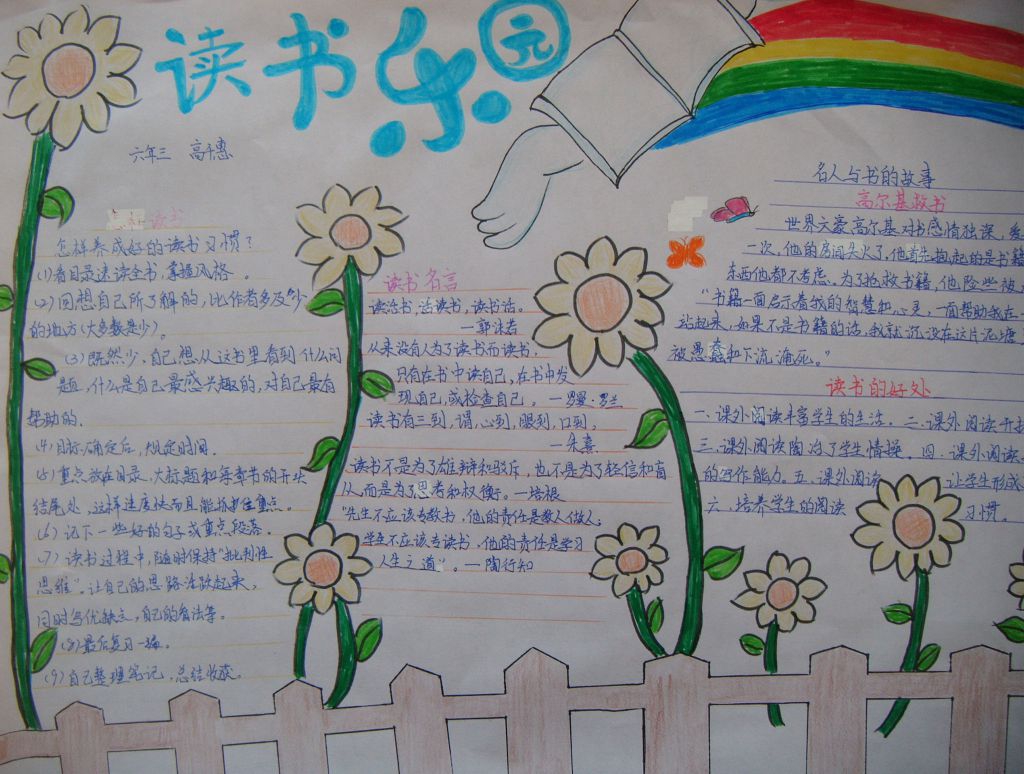 读书乐园
六年三 高千惠
读书
怎样养成好的读书习惯？
(1)看目录速读全书，掌握风格。
(2)回想自己所了解的，比作者多及少
的地方(大多数是少)。
(3)既然少，自己想从这书里看到什么问
题，什么是自己最感兴趣的，对自己最有
帮助的。
(4)目标确定后，规定时间。
(5)重点放在目录，大标题和每章节的开头
结尾处，这样速度快而且能抓住重点。
(6)记下一些好的句子或重点段落。
(7)读书过程中，随时保持"批判性
思维"。让自己的思路活跃起来，
同时写优缺点，自己的看法等。
(8)最后复习一遍。
(9)自己整理笔记，总结收获。
读书名言
读活书，活读书，读书活。
—郭沫若
从来没有人为了读书而读书，
只有在书中读自己，在书中发
现自己，或检查自己。—罗曼·罗兰
读书有三到，谓，心到，眼到，口到，
—朱熹
读书不是为了雄辩和驳斥，也不是为了轻信和盲
从，而是为了思考和权衡。—培根
"先生不应该专教书，他的责任是教人做人；
学生不应该专读书，他的责任是学习
人生之道"。—陶行知
名人与书的故事
高尔基救书
世界文豪高尔基对书感情独深，爱
一次，他的房间失火了，他首先抱起的是书籍
东西他都不考虑。为了抢救书籍，他险些被
"书籍一面启示着我的智慧和心灵，一面帮助我在一
站起来，如果不是书籍的话，我就沉没在这片泥塘
被愚蠢和下流淹死。"
读书的好处
一、课外阅读丰富学生的生活。二、课外阅读开拓
三、课外阅读陶冶了学生情操。四、课外阅读
的写作能力。五、课外阅读 让学生形成
六、培养学生的阅读 习惯。